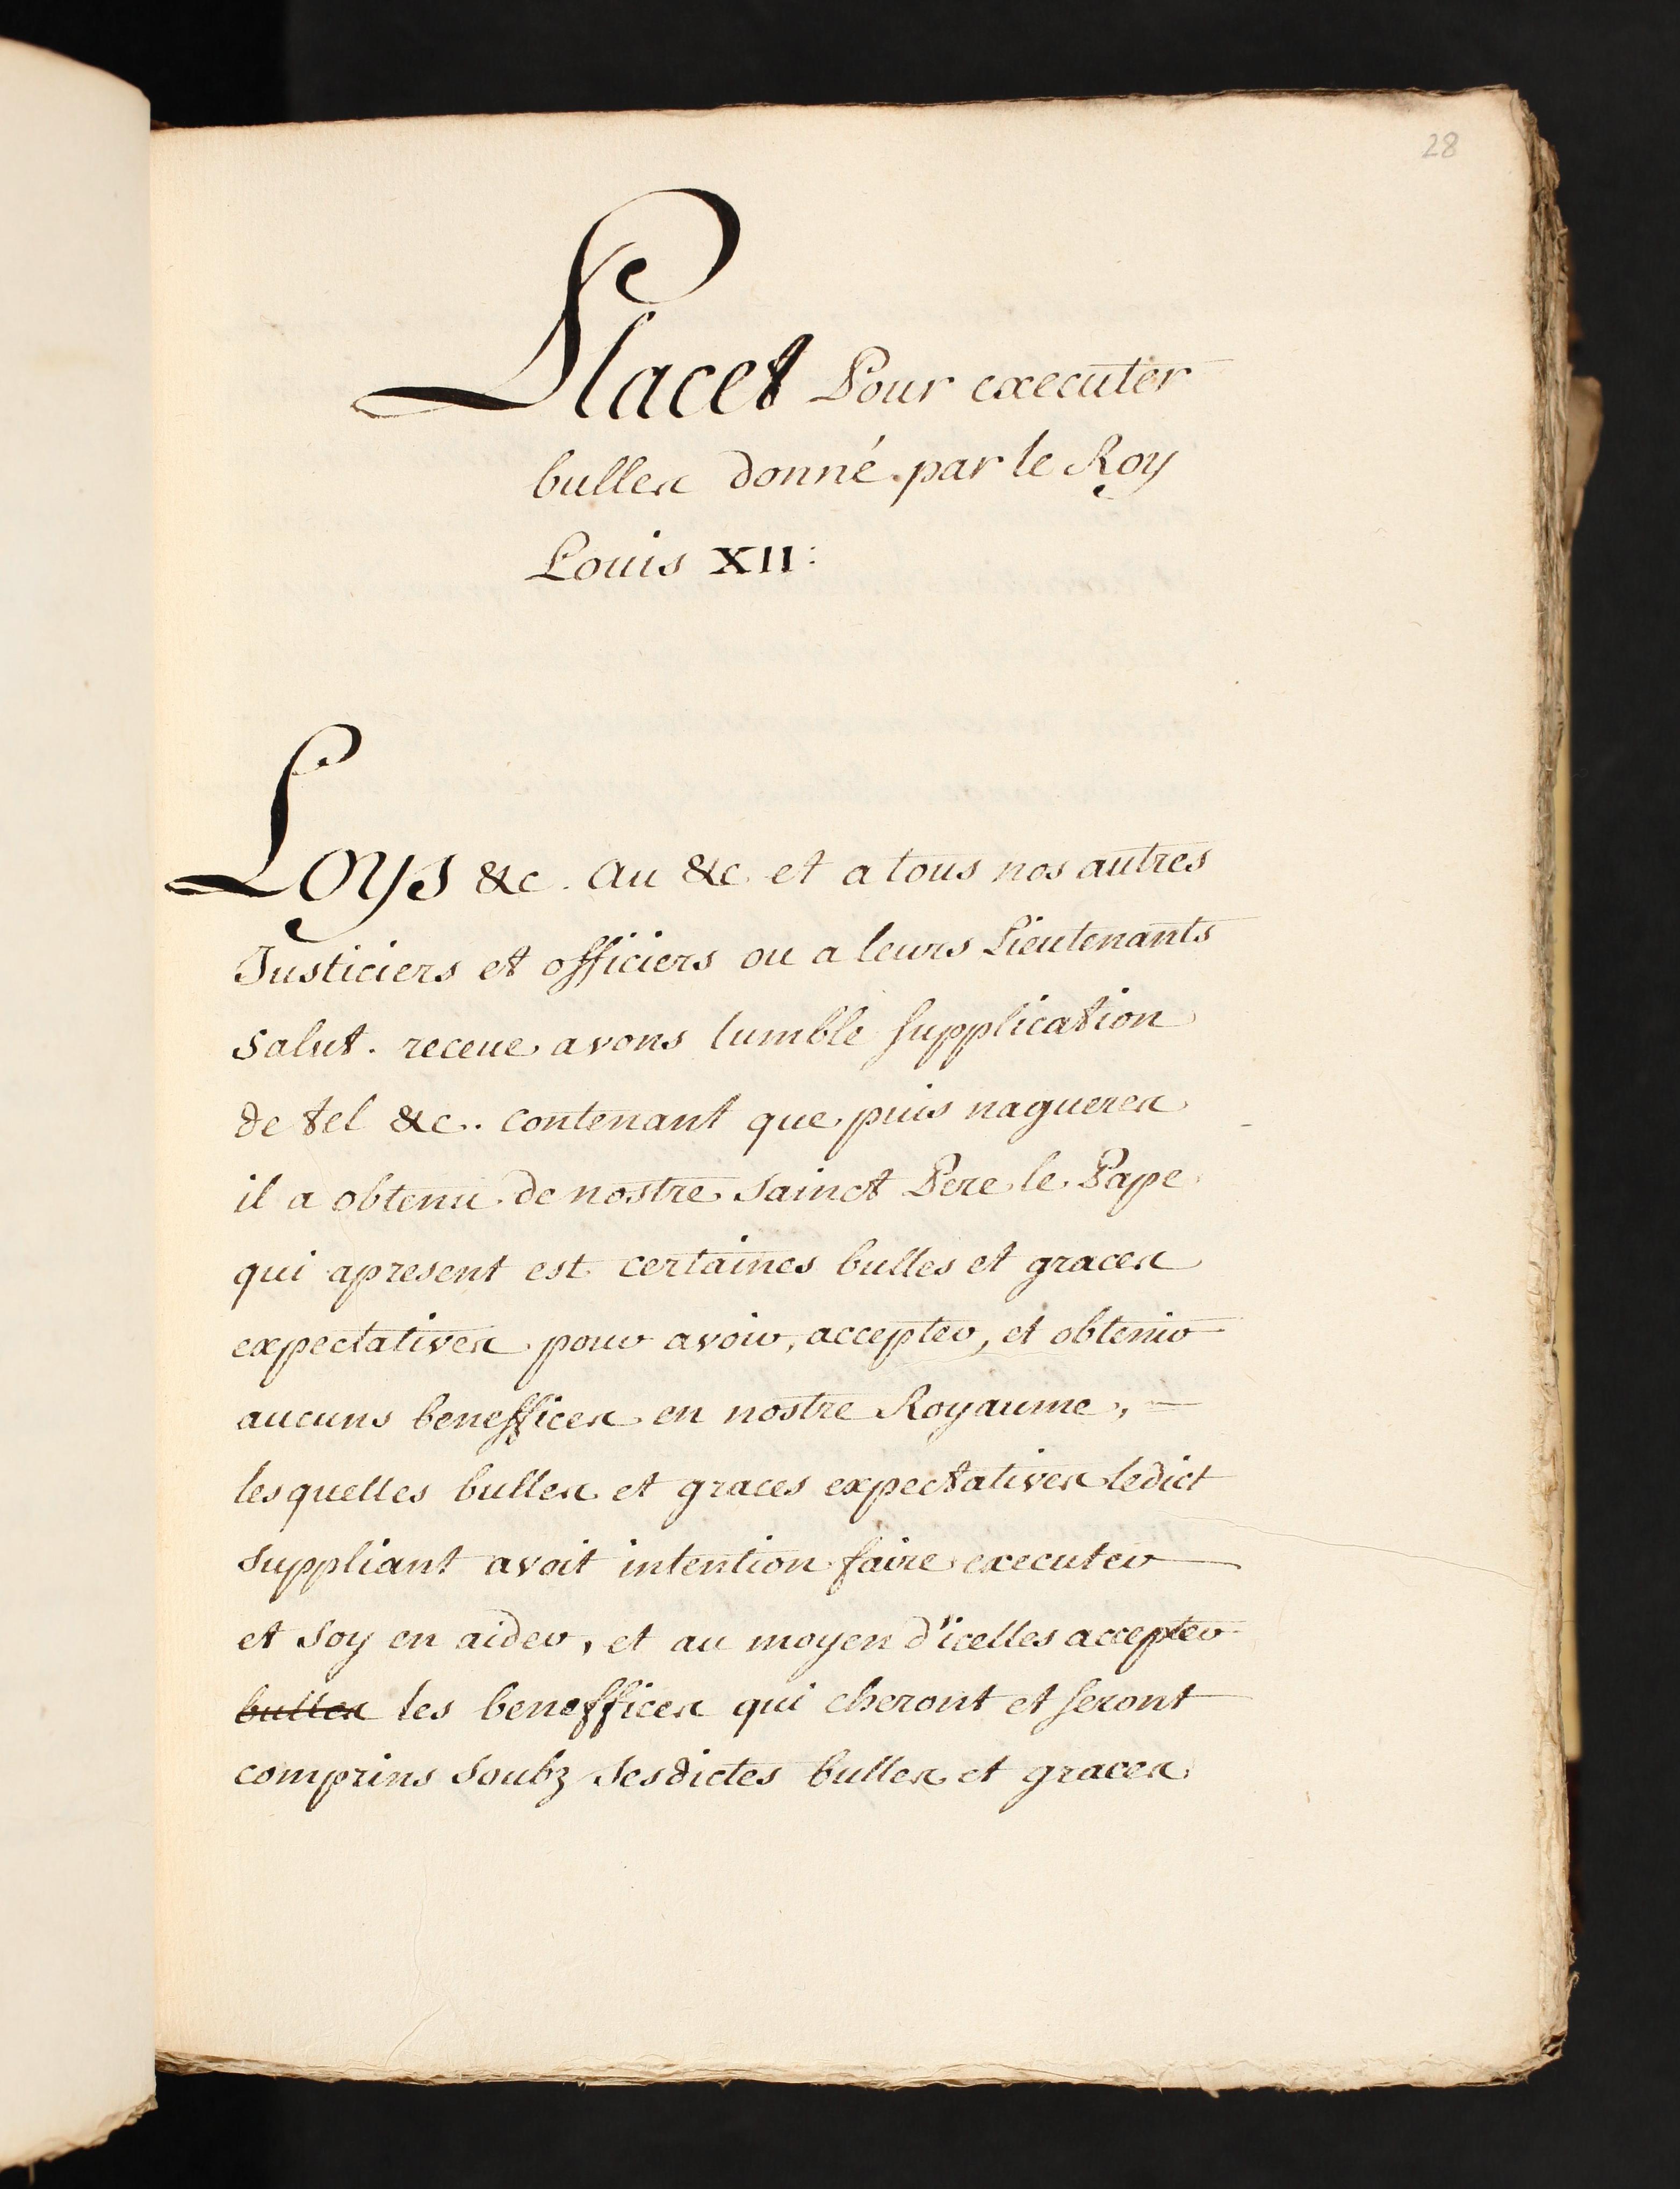 28
Placet Pour executer
bulles donné par le Roy
Louis XII:
Loys &c. au &c et a tous nos autres
Justiciers et officiers ou a leurs Lieutenants
salut. receue avons lumble supplication
de tel &c. contenant que puis nagueres
il a obtenu de nostre sainct Pere le Pape
qui apresent est certaines bulles et graces
expectatives pour avoir, accepter, et obtenir
aucuns beneffices en nostre Royaume, —
lesquelles bulles et graces expectatives ledict
suppliant avoit intention faire executer
et soy en aider, et au moyen d'icelles accepter
bulles les beneffices qui cheront et seront
comprins soubz sesdictes bulles et graces